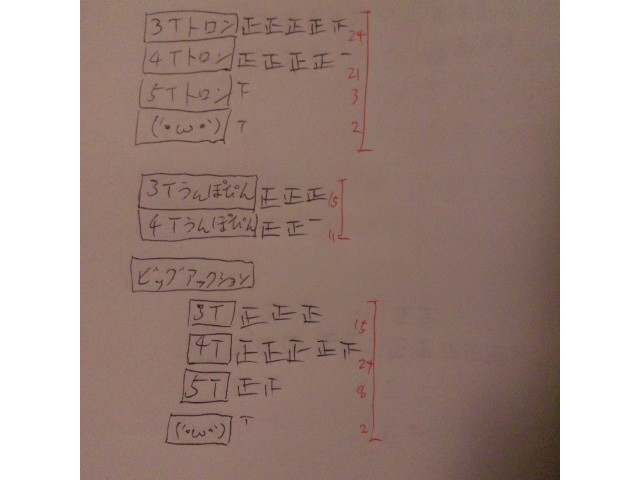 3Tトロン 正正正正正 24
4Tトロン 正正正正一 21
5Tトロン 下 3
(´・ω・`) T 2
3Tうんぽぴん 正正正 15
4Tうんぽぴん 正正一 11
ビッグアクション
3T 正正正 15
4T 正正正正正 24
5T 正正 8
(´・ω・`) T 2